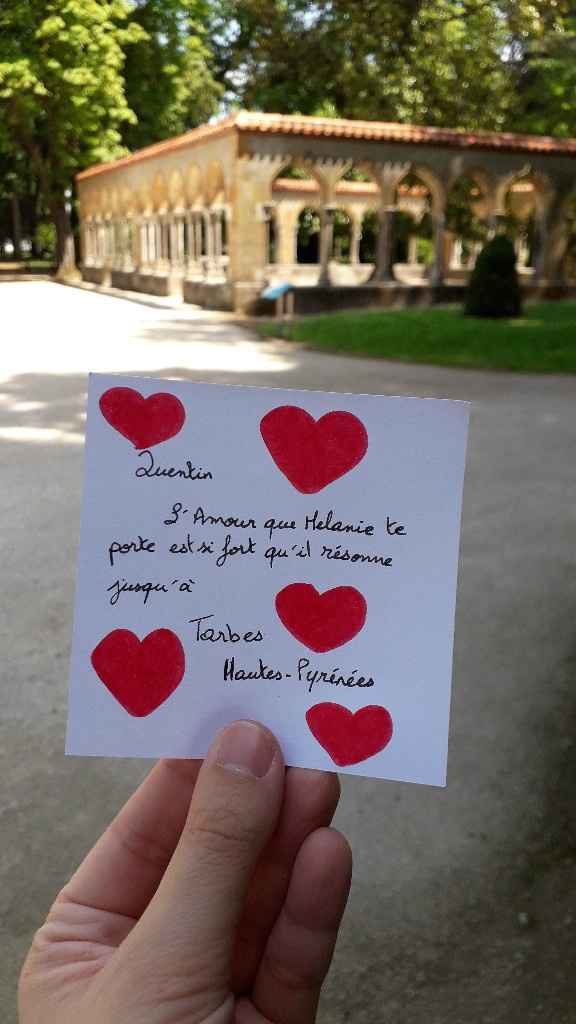 Quentin
L'Amour que Melanie te
porte est si fort qu'il résonne
jusqu'à
Tarbes
Hautes-Pyrénées